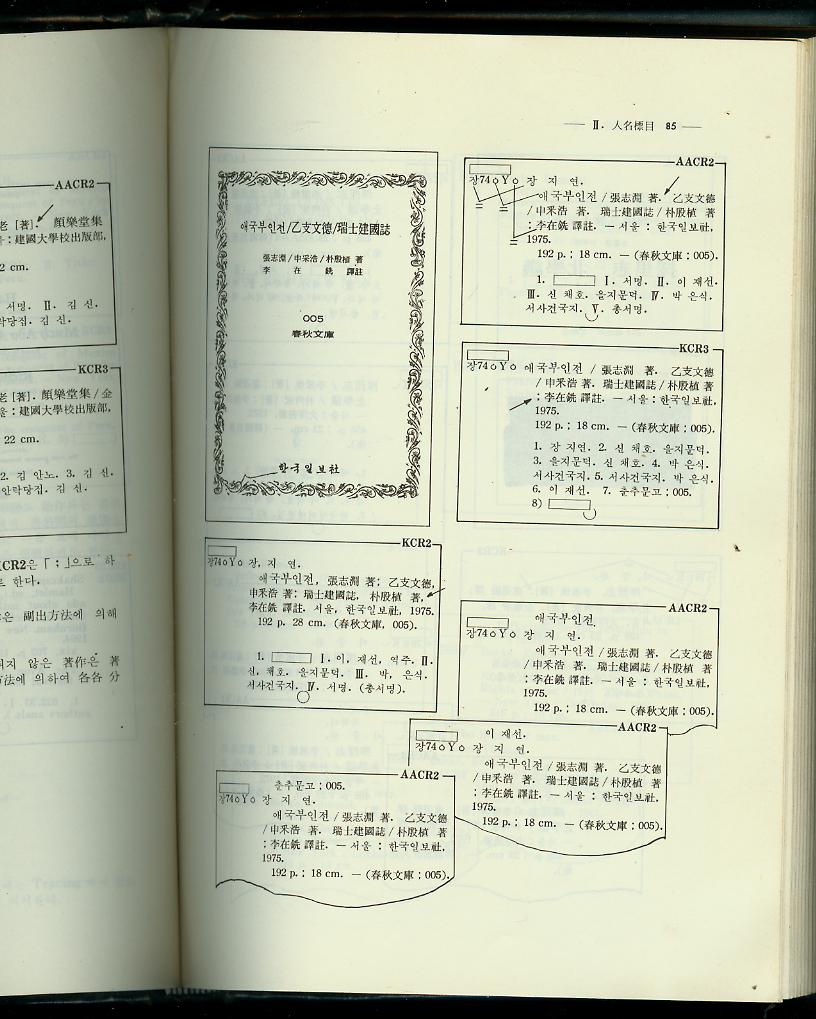 AACR2
老 [著]. 顏樂堂集
: 建國大學校出版部,
2 cm.
서명. Ⅱ. 김 신.
락당집. 김 신.
KCR3
老 [著]. 顏樂堂集 / 金
울 : 建國大學校出版部,
22 cm.
2. 김 안노. 3. 김 신.
안락당집. 김 신.
KCR2은 「 ; 」으로 하
로 한다.
은 副出方法에 의해
되지 않은 著作은 著
方法에 의하여 各各 分
— Ⅱ. 人名標目 85 —
애국부인전/乙支文德/瑞士建國誌
張志淵 / 申采浩 / 朴殷植 著
李 在 銑 譯註
005
春秋文庫
한국일보社
AACR2
장74o Y o 장 지 연.
애국부인전 / 張志淵 著. 乙支文德
/ 申釆浩 著. 瑞士建國誌 / 朴殷植 著
; 李在銑 譯註. — 서울 : 한국일보社,
1975.
192 p. ; 18 cm. — (春秋文庫 ; 005).
1. Ⅰ. 서명. Ⅱ. 이 재선.
Ⅲ. 신 채호. 을지문덕. Ⅳ. 박 은식.
서사건국지. Ⅴ. 총서명.
KCR3
장74o Y o 애국부인전 / 張志淵 著. 乙支文德
/ 申釆浩 著. 瑞士建國誌 / 朴殷植 著
; 李在銑 譯註. — 서울 : 한국일보社,
1975.
192 p. ; 18 cm. — (春秋文庫 ; 005).
1. 장 지연. 2. 신 채호. 을지문덕.
3. 을지문덕. 신 채호. 4. 박 은식.
서사건국지. 5. 서사건국지. 박 은식.
6. 이 재선. 7. 춘추문고 ; 005.
8)
KCR2
장74o Y o 장, 지 연.
애국부인전, 張志淵 著; 乙支文德,
申釆浩 著; 瑞士建國誌, 朴殷植 著,
李在銑 譯註. 서울, 한국일보社, 1975.
192 p. 28 cm. (春秋文庫, 005).
1. Ⅰ. 이, 재선, 역주. Ⅱ.
신, 채호. 을지문덕. Ⅲ. 박, 은식.
서사건국지. Ⅳ. 서명. (총서명).
AACR2
애국부인전.
장74o Y o 장 지 연.
애국부인전 / 張志淵 著. 乙支文德
/ 申釆浩 著. 瑞士建國誌 / 朴殷植 著
; 李在銑 譯註. — 서울 : 한국일보社,
1975.
192 p. ; 18 cm. — (春秋文庫 ; 005).
AACR2
이 재선.
장74o Y o 장 지 연.
애국부인전 / 張志淵 著. 乙支文德
/ 申釆浩 著. 瑞士建國誌 / 朴殷植 著
; 李在銑 譯註. — 서울 : 한국일보社,
1975.
192 p. ; 18 cm. — (春秋文庫 ; 005).
AACR2
춘추문고 ; 005.
장74o Y o 장 지 연.
애국부인전 / 張志淵 著. 乙支文德
/ 申釆浩 著. 瑞士建國誌 / 朴殷植 著
; 李在銑 譯註. — 서울 : 한국일보社,
1975.
192 p. ; 18 cm. — (春秋文庫 ; 005).